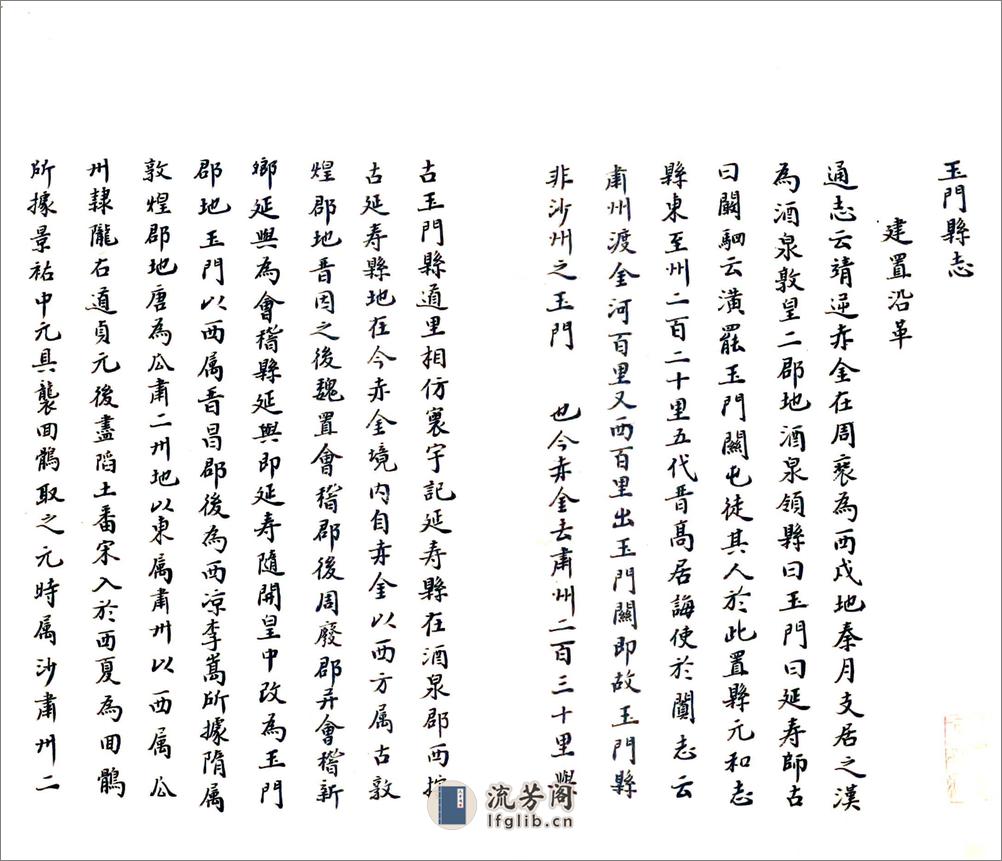 玉門縣志
建置沿革
通志云靖逆赤金在周衰為西戍地秦月支居之漢
為酒泉敦皇二郡地酒泉領縣曰玉門曰延寿師古
曰闞駰云潢罷玉門關屯徒其人於此置縣元和志
縣東至州二百二十里五代晋髙居誨使於闐志云
肅州渡金河百里又西百里出玉門關即故玉門縣
非沙州之玉門 也今赤金去肅州二百三十里與
古玉門縣道里相仿寰宇記延寿縣在酒泉郡西
古延寿縣地在今赤金境内自赤金以西方属古敦
煌郡地晋因之後魏置會稽郡後周廢郡并會稽新
鄉延興為會稽縣延興即延寿隨開皇中改為玉門
郡地玉門以西属晋昌郡後為西凉李嵩所據隋属
敦煌郡地唐為瓜肅二州地以東属肅州以西属瓜
州隸隴右道貞元後盡陷土番宋入於西夏為回鶻
所據景祐中元具襲回鶻取之元時属沙肅州二
流芳阁
lfglib.cn